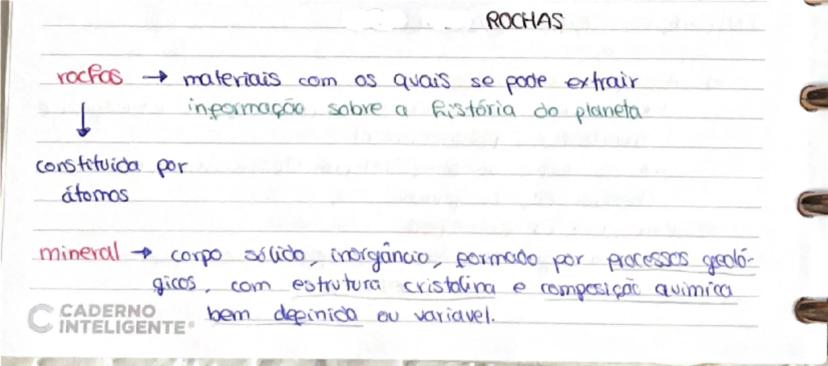 ROCHAS
rochas → materiais com os quais se pode extrair
informação sobre a história do planeta
↓
constituída por
átomos
mineral → corpo sólido, inorgâncio, formado por processos geoló-
gicos, com estrutura cristalina e composição química
bem definida ou variavel.
CADERNO
INTELIGENTE®